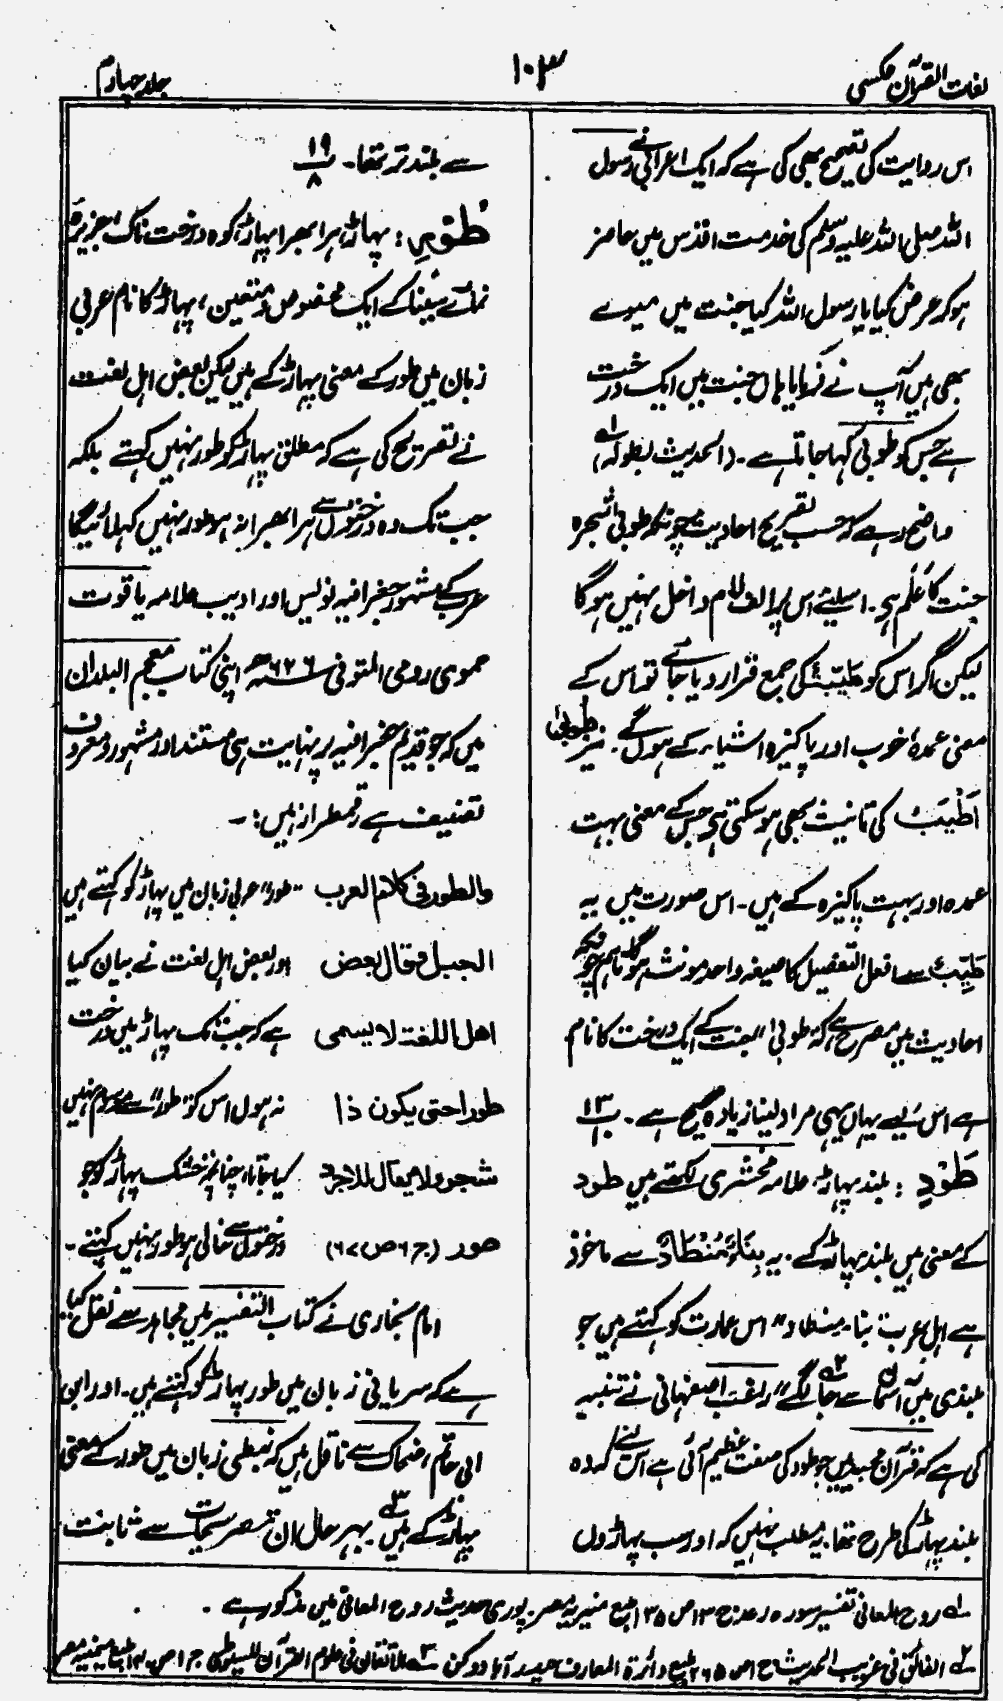 لغات القرآن عکسی
۱۰۳
جلد چہارم
اس روایت کی تصحیح بھی کی ہے کہ ایک اعرابی نے رسول
اللہ صلی اللہ علیہ وسلم کی خدمت اقدس میں حاضر
ہو کر عرض کیا یا رسول اللہ کیا جنت میں میوے
بھی ہیں آپ نے فرمایا ہاں جنت میں ایک درخت
ہے جس کو طوبی کہا جاتا ہے۔ (الحدیث بطولہ) ۱؎
واضح رہے کہ حسب تصریح احادیث چونکہ طوبی شجرہ
جنت کا عَلَم ہے۔ اسلیے اس پر الف لام داخل نہیں ہوگا
لیکن اگر اس کو طَیِّبَۃ کی جمع قرار دیا جائے تو اس کے
معنی عمدہ، خوب اور پاکیزہ اشیاء کے ہوں گے۔ نیز طوبیٰ
اَطْیَب کی تانیث بھی ہو سکتی ہے جس کے معنی بہت
عمدہ اور بہت پاکیزہ کے ہیں۔ اس صورت میں یہ
طَیِّب سے افعل التفضیل کا صیغہ واحد مونث ہوگا تاہم چونکہ
احادیث میں مصرح ہے کہ طوبیٰ "جنت کے ایک درخت کا نام
ہے اس لیے یہاں یہی مراد لینا زیادہ صحیح ہے۔ ۱۳
طَوْدٍ : بلند پہاڑ۔ علامہ زمخشری لکھتے ہیں طود
کے معنی ہیں بلند پہاڑ کے۔ یہ بِنَاءٌ مُنْطَادٌ سے ماخوذ
ہے اہل عرب بناء منطاد" اس عمارت کو کہتے ہیں جو
بلندی میں آسمان سے جا لگے"۲؎ راغب اصفہانی نے تنبیہ
کی ہے کہ قرآن مجید میں جو طود کی صفت عظیم آئی ہے اس لئے کہ وہ
بلند پہاڑ کی طرح تھا۔ یہ مطلب نہیں کہ اور سب پہاڑوں
سے بلند تر تھا۔ ۱۹ ۸
طُوْرِ : پہاڑ، ہرا بھرا پہاڑ، کوہ درخت ناک، جزیرہ
نمائے سینا کے ایک مخصوص و متعین، پہاڑ کا نام عربی
زبان میں طور کے معنی پہاڑ کے ہیں لیکن بعض اہل لغت
نے تصریح کی ہے کہ مطلق پہاڑ کو طور نہیں کہتے بلکہ
جب تک وہ درختوں سے ہرا بھرا نہ ہو طور نہیں کہلائیگا
عرب کے مشہور جغرافیہ نویس اور ادیب علامہ یاقوت
حموی رومی المتوفی ۶۲۶ھ اپنی کتاب معجم البلدان
میں کہ جو قدیم جغرافیہ پر نہایت ہی مستند اور مشہور و معروف
تصنیف ہے رقمطراز ہیں :۔
والطور فی کلام العرب "طور" عربی زبان میں پہاڑ کو کہتے ہیں
الجبل فقال بعض اور بعض اہل لغت نے بیان کیا
اھل اللغۃ لا یسمی ہے کہ جب تک پہاڑ میں درخت
طورا حتی یکون ذا نہ ہوں اس کو "طور" سے موسوم نہیں
شجر ولا یقال للاجرد کیا جاتا، چنانچہ خشک پہاڑ کو جو
طور (ج ۶ ص ۶۷) درختوں سے خالی ہو طور نہیں کہتے۔
امام بخاری نے کتاب التفسیر میں مجاہد سے نقل کیا
ہے کہ سریانی زبان میں طور پہاڑ کو کہتے ہیں۔ اور ابن
ابی حاتم، ضحاک سے ناقل ہیں کہ نبطی زبان میں طور کے معنی
پہاڑ کے ہیں۳؎ بہرحال ان تصریحات سے ثابت
۱؎ روح المعانی تفسیر سورہ رعد ج ۱۳ ص ۱۳۵ طبع منیریہ مصر۔ پوری حدیث روح المعانی میں مذکور ہے۔
۲؎ الفائق فی غریب الحدیث ج ۱ ص ۲۶۵ طبع دائرۃ المعارف حیدر آباد دکن ۳؎ الاتقان فی علوم القرآن للسیوطی ج ۱ ص طبع میمنیہ مصر